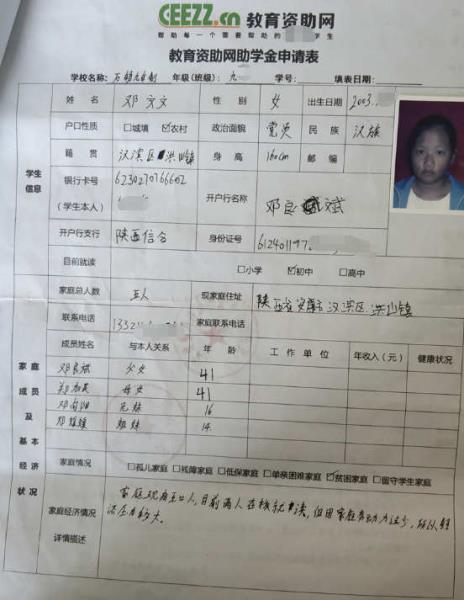 CEEZZ.cn 教育资助网
帮助每一个需要帮助的 学生
教育资助网助学金申请表
学校名称: 年级(班级): 九 学号: 填表日期:
姓名 邓 性别 女 出生日期 2003.
户口性质 □城填 ☑农村 政治面貌 党员 民族 汉族
学生信息
籍贯 汉滨区洪山镇 身高 160cm 邮编
银行卡号 6230270766602
(学生本人)
开户行名称 邓良斌
开户行支行 陕西信合 身份证号 612401197
目前就读 □小学 ☑初中 □高中
家庭总人数 五人 现家庭住址 陕西省安康市汉滨区洪山镇
联系电话 1332 家庭联系电话
成员姓名 与本人关系 年龄 工作单位 年收入(元) 健康状况
邓良斌 父女 41
母女 41
16
姐妹 14
家庭成员及基本经济状况
家庭情况 □孤儿家庭 □残障家庭 □低保家庭 □单亲困难家庭 ☑贫困家庭 □留守学生家庭
家庭经济情况
详情描述
家庭现有五口人,目前两人在校就读,但因家庭劳动力过少,所以经
济压力较大。